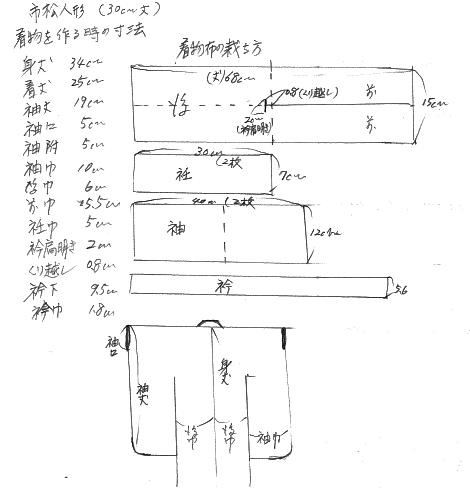 市松人形 (30cm丈)
着物を作る時の寸法
身丈 34cm
着丈 25cm
袖丈 19cm
袖口 5cm
袖附 5cm
袖巾 10cm
後巾 6cm
前巾 5.5cm
衽巾 5cm
衿肩明き 2cm
くり越し 0.8cm
衿下 9.5cm
衿巾 1.8cm
着物布の裁ち方
(丈)68cm
後
0.8(くり越し)
前
前
2cm
(衿肩明き)
15cm
30cm (2枚
衽
7cm
40cm (2枚
袖
12cm
衿
5.6
袖口
袖丈
身丈
後巾
後巾
袖巾